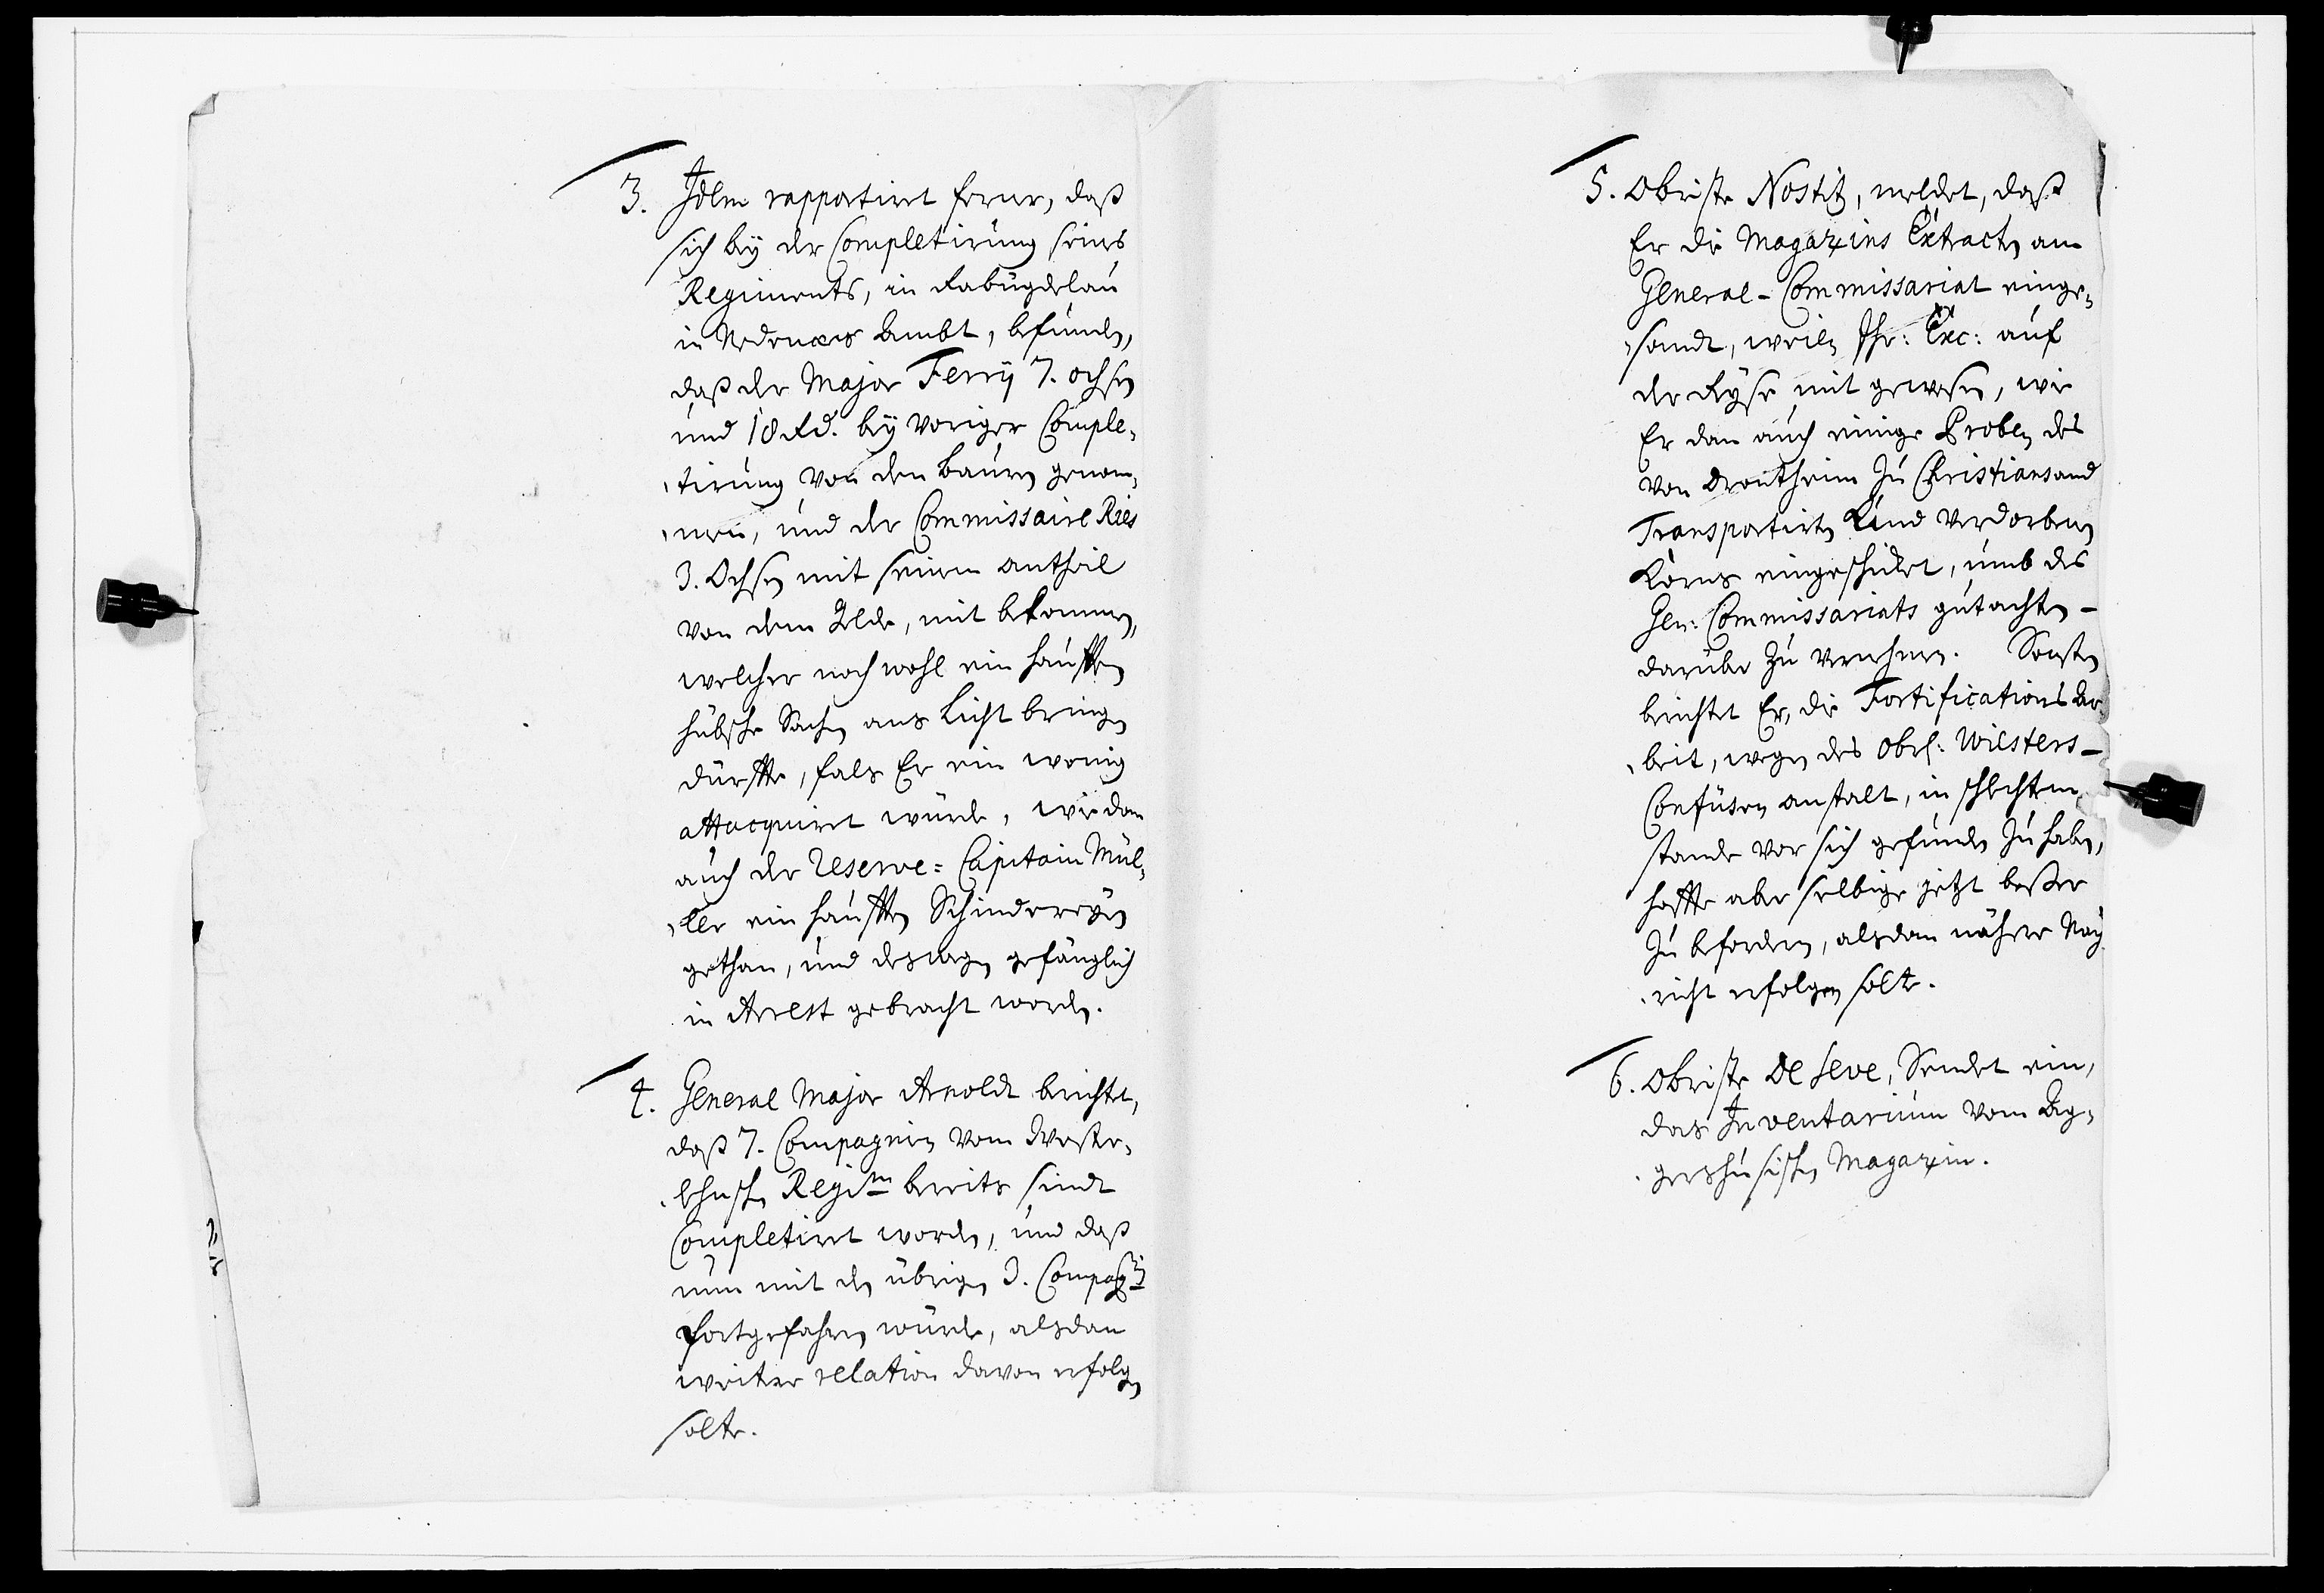 3. Idem rapportiret ferner, daß
sich bey der Completirung seines
Regiments, in Rabygdelau
in Nedenæs Ambt, befunden,
daß der Major Ferry 7. ochsen
und 18 Rd. bey voriger Comple-
tirung von den Bauren genom-
men, und der Commissaire Ries
3. Ochsen mit seinem antheil
von dem Gelde, mit bekommen,
welcher noch wohl ein hauffen
hübsche Sachen ans Licht bringen
dürffte, fals Er ein wenig
attacquiret würde, wie dan
auch der Reserve-Capitain Mül-
ler ein hauffen Schindereyen
gethan, und deswegen gefänglich
in Arrest gebracht worden.
4. General Major Arnoldt berichtet,
daß 7. Compagnien vom Wester-
lehnsch. Regim bereits sindt
Completiret worden, und daß
nun mit den übrigen 3. Compag
fortgefahren würde, alsdan
weiter relation davon erfolgen
solte.
5. Obriste Nostitz, meldet, daß
Er die Magazins Extracten am
General-Commissariat einge-
sandt, weilen Ihr: Exc: auf
der Reyse mit gewesen, wie
Er dan auch einige Proben des
von Drontheim zu Christiansand
Transportirten und verdorbenen
Korns eingeschicket, umb des
Gen: Commissariats gutachten
darüber zu vernehmen. Sonsten
berichtet Er, die Fortifications Ar-
beit, wegen des Obrl: Wilsters
Confusen anstalt, in schlechtem
stande vor sich gefunden zu haben,
hoffte aber selbige jetzt beßer
zu befordern, alsdan näher Nach-
richt erfolgen solte.
6. Obriste de Seve, Sendet ein,
das Inventarium vom Ag-
gershusischen Magazin.